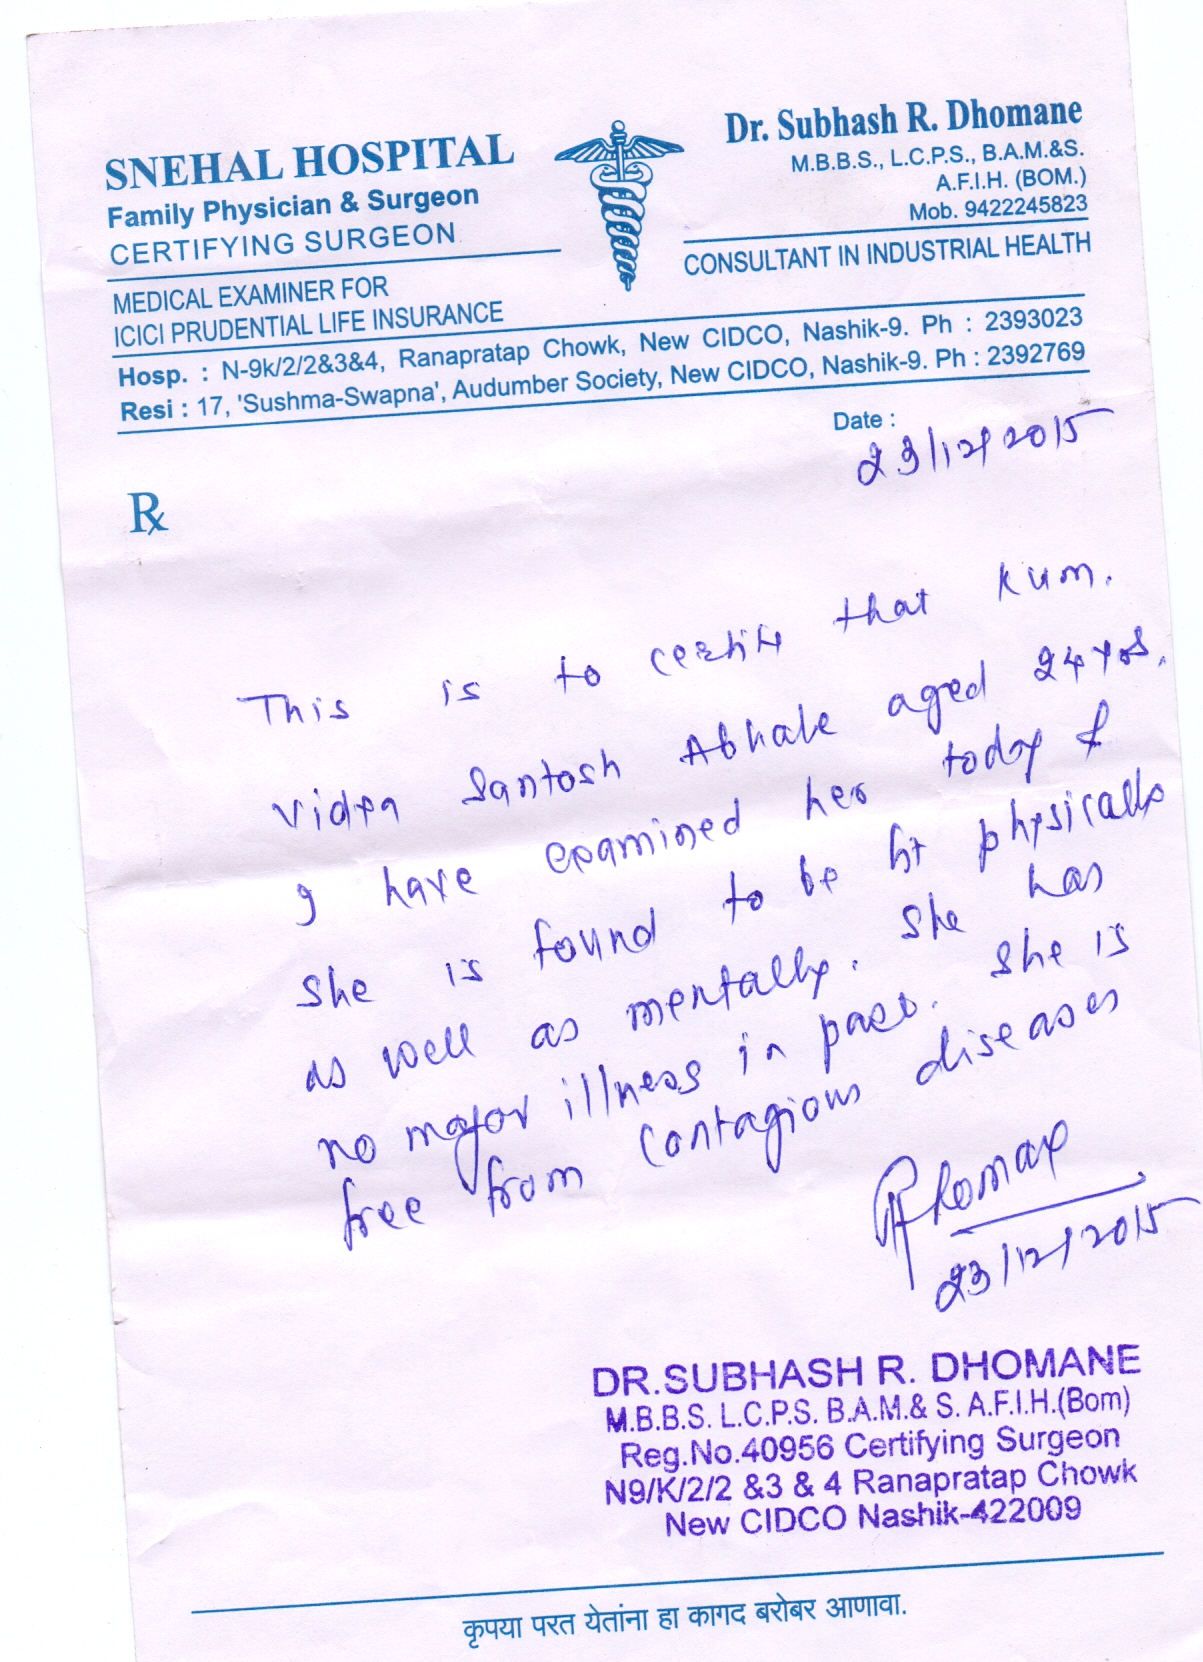 SNEHAL HOSPITAL
Family Physician & Surgeon
CERTIFYING SURGEON
MEDICAL EXAMINER FOR
ICICI PRUDENTIAL LIFE INSURANCE
Dr. Subhash R. Dhomane
M.B.B.S., L.C.P.S., B.A.M.&S.
A.F.I.H. (BOM.)
Mob. 9422245823
CONSULTANT IN INDUSTRIAL HEALTH
Hosp. : N-9k/2/2&3&4, Ranapratap Chowk, New CIDCO, Nashik-9. Ph : 2393023
Resi : 17, 'Sushma-Swapna', Audumber Society, New CIDCO, Nashik-9. Ph : 2392769
Date :
23/12/2015
Rx
This is to certify that Kum.
Vidya Santosh Abhale aged 24 yrs.
I have examined her today &
she is found to be fit physically
as well as mentally. She has
no major illness in past. She is
free from contagious diseases
Dhomane
23/12/2015
DR.SUBHASH R. DHOMANE
M.B.B.S. L.C.P.S. B.A.M.& S. A.F.I.H.(Bom)
Reg.No.40956 Certifying Surgeon
N9/K/2/2 &3 & 4 Ranapratap Chowk
New CIDCO Nashik-422009
कृपया परत येतांना हा कागद बरोबर आणावा.